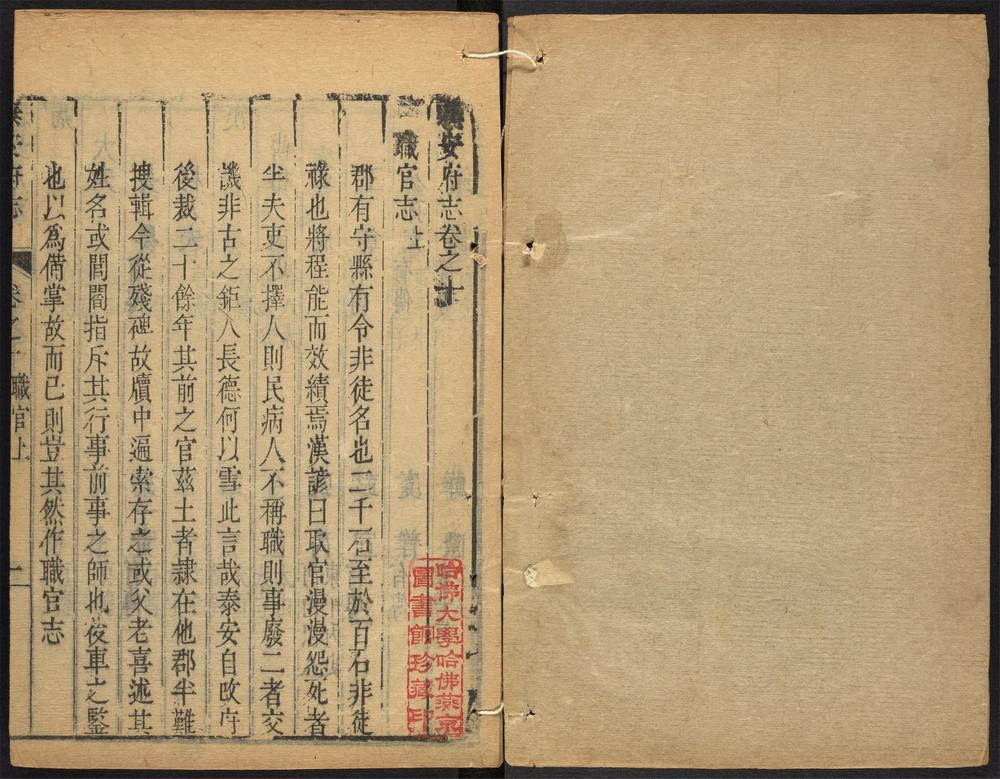 泰安府志卷之十
職官志上
郡有守縣有令非徒名也二千石至於百石非徒
祿也將程能而效績焉漢諺曰取官漫漫怨死者
半夫吏不擇人則民病人不稱職則事廢二者交
譏非古之鉅人長德何以雪此言哉泰安自改府
後裁二十餘年其前之官茲土者隸在他郡半難
搜輯今從殘碑故牘中遍索存之或父老喜述其
姓名或閭閻指斥其行事前事之師也後車之鑒
也以爲備掌故而已則豈其然作職官志
泰安府志
卷之十職官上
一
哈佛大學哈佛燕京
圖書館珍藏印